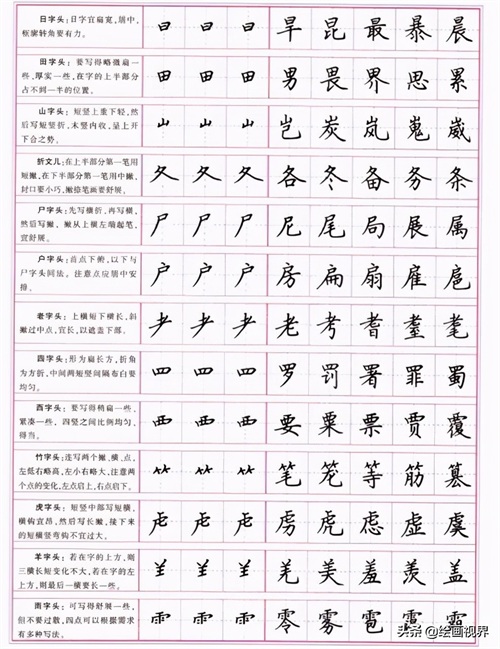 日字头：日字宜扁宽，居中，
框廓转角要有力。
日 日 日 旱 昆 最 暴 晨
田字头：要写得略微扁一
些，厚实一些，在字的上半部分
占不到一半的位置。
田 田 田 男 畏 界 思 累
山字头：短竖上重下轻，然
后写短竖折，末竖内收，呈上开
下合之势。
山 山 山 岂 炭 岚 嵬 崴
折文儿：在上半部分第一笔用
短撇，在下半部分第一笔用中撇，
封口要小巧，撇捺笔画要舒展。
夂 夂 夂 各 冬 备 务 条
尸字头：先写横折，再写横，
然后写撇，撇从上横左端起笔，
宜舒展。
尸 尸 尸 尼 尾 局 展 属
户字头：首点下俯，以下与
尸字头同法。注意点应居中安
排。
户 户 户 房 扁 扇 雇 扈
老字头：上横短下横长，斜
撇过中点，宜长，以遮盖下部。
耂 耂 耂 老 考 耆 耋 耄
四字头：形为扁长方，折角
为方折，中间两短竖间隔布白要
均匀。
罒 罒 罒 罗 罚 署 罪 蜀
西字头：要写得稍扁一些，
紧凑一些，四竖之间比例均匀，
得当。
覀 覀 覀 要 粟 票 贾 覆
竹字头：连写两个撇、横、点，
左低右略高，左小右略大，注意两
个点的变化，左点启上，右点启下。
⺮ ⺮ ⺮ 笔 笼 等 筋 篡
虎字头：短竖中部写短横，
横钩宜昂，然后写长撇，接下来
的短横竖弯钩不宜过大。
虍 虍 虍 虏 虎 虑 虚 虞
羊字头：若在字的上方，则
三横长短变化不大，若在字的左
上方，则最后一横要长一些。
⺶ ⺶ ⺶ 羌 美 羞 羡 盖
雨字头：可写得舒展一些，
但不要过散，四点可以根据需求
有多种写法。
⻗ ⻗ ⻗ 零 雾 雹
头条 @绘画视界